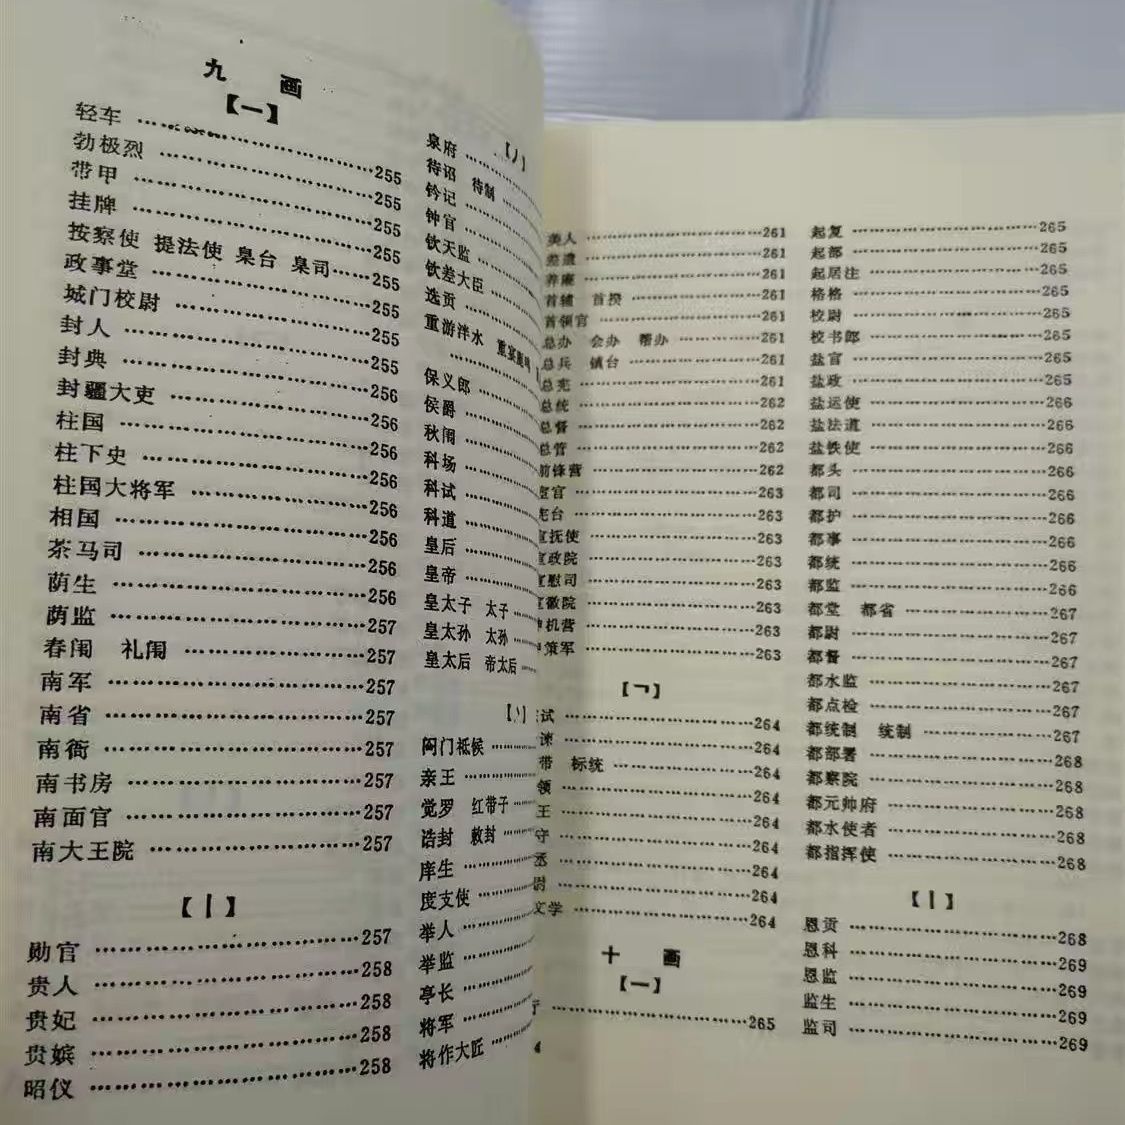 九 画
【一】
轻车 ……255
勃极烈 ……255
带甲 ……255
挂牌 ……255
按察使 提法使 臬台 臬司……255
政事堂 ……255
城门校尉 ……255
封人 ……255
封典 ……256
封疆大吏 ……256
柱国 ……256
柱下史 ……256
柱国大将军 ……256
相国 ……256
茶马司 ……256
荫生 ……257
荫监 ……257
春闱 礼闱 ……257
南军 ……257
南省 ……257
南衙 ……257
南书房 ……257
南面官 ……257
南大王院 ……257
【丨】
勋官 ……257
贵人 ……258
贵妃 ……258
贵嫔 ……258
昭仪 ……258
【丿】
泉府 ……
待诏 待制 ……
钤记 ……
钟官 ……
钦天监 ……
钦差大臣 ……
选贡 ……
重游泮水 重宴鹿鸣
……
保义郎 ……
侯爵 ……
秋闱 ……
科场 ……
科试 ……
科道 ……
皇后 ……
皇帝 ……
皇太子 太子 ……
皇太孙 太孙 ……
皇太后 帝太后 ……
【丶】
閤门祗候 ……
亲王 ……
觉罗 红带子 ……
诰封 敕封 ……
庠生 ……
度支使 ……
举人 ……
举监 ……
亭长 ……
将军 ……
将作大匠 ……
美人 ……261
差遣 ……261
养廉 ……261
首辅 首揆 ……261
首领官 ……261
总办 会办 帮办 ……261
总兵 镇台 ……261
总宪 ……261
总统 ……262
总督 ……262
总管 ……262
前锋营 ……262
官 ……263
台 ……263
抚使 ……263
政院 ……263
慰司 ……263
徽院 ……263
机营 ……263
策军 ……263
【乛】
试 ……264
谏 ……264
带 标统 ……264
领 ……264
王 ……264
守 ……264
丞 ……264
尉 ……264
文学 ……264
十 画
【一】
……265
4
起复 ……265
起部 ……265
起居注 ……265
格格 ……265
校尉 ……265
校书郎 ……265
盐官 ……265
盐政 ……265
盐运使 ……266
盐法道 ……266
盐铁使 ……266
都头 ……266
都司 ……266
都护 ……266
都事 ……266
都统 ……266
都监 ……266
都堂 都省 ……267
都尉 ……267
都督 ……267
都水监 ……267
都点检 ……267
都统制 统制 ……267
都部署 ……268
都察院 ……268
都元帅府 ……268
都水使者 ……268
都指挥使 ……268
【丨】
恩贡 ……268
恩科 ……269
恩监 ……269
监生 ……269
监司 ……269